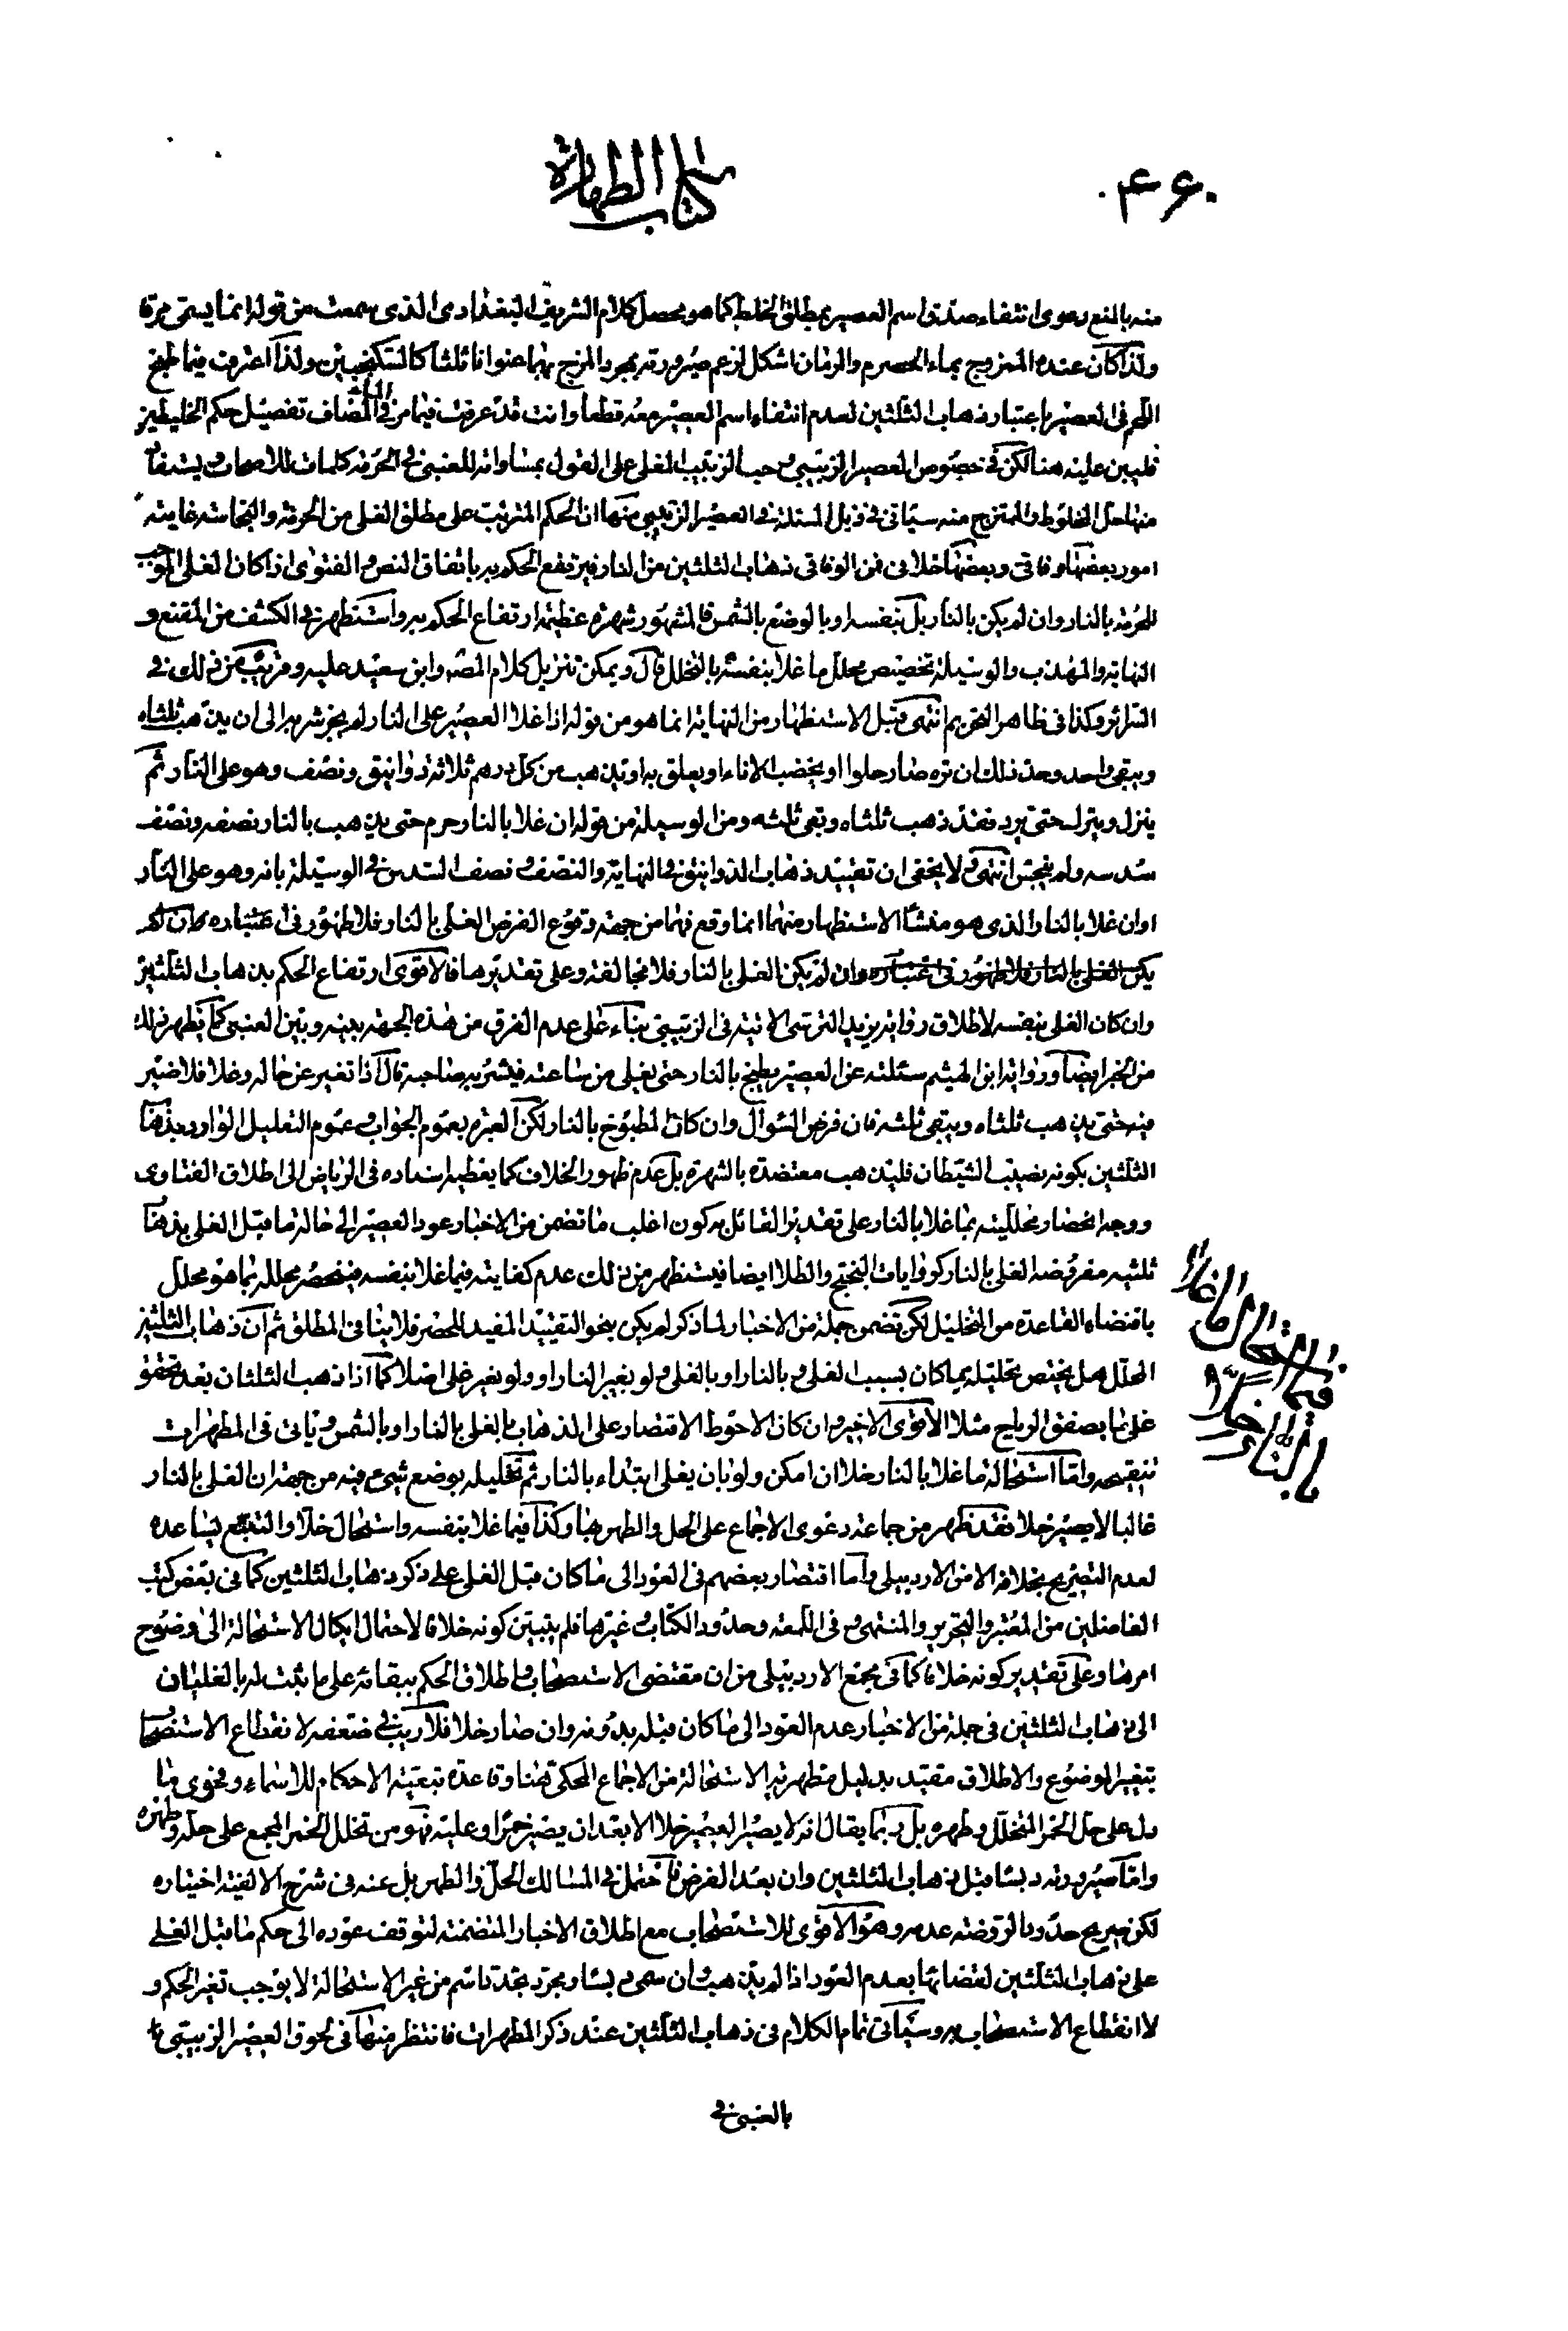 ۴۶۰
كتاب الطهارة
منه بالمنع دعوى انتفاء صدق اسم العصير بمطلق الخلط كما هو محصل كلام الشريف البغدادى الذى سمعت من قوله انما يسمى مرقا
ولذا كان عنده الممزوج بماء الحصرم والرمان اشكل لزعم صيرورته بمجرد المزج بهما عنوانا ثالثا كالسكنجبين ولذا اعترف فيما طبخ
اللحم فى العصير باعتبار ذهاب الثلثين لعدم انتفاء اسم العصير معه قطعا وانت قد عرفت فيما مر فى الماء المضاف تفصيل حكم الخليطين
فليبن عليه هنا لكن فى خصوص العصير الزبيبى وحب الزبيب المغلى على القول بمساواته للعنبى فى الحرمة كلمات للاصحاب يستفاد
منها حل المخلوط والممتزج منه سيأتى فى ذيل المسئلة فى العصير الزبيبى منها ان الحكم المترتب على مطلق الغلى من الحرمة والنجاسة غايته
امور بعضها وفاقى وبعضها خلافى فمن الوفاقى ذهاب الثلثين من النار فيرتفع الحكم به باتفاق النص والفتوى اذا كان الغلى الموجب
للحرمة بالنار وان لم يكن بالنار بل بنفسه او بالوضع بالشمس فالمشهور شهرة عظيمة ارتفاع الحكم به واستظهر فى الكشف من المقنع و
النهاية والمهذب والوسيلة تخصيص محلل ما غلا بنفسه بالتخلل قال ويمكن تنزيل كلام المص وابن سعيد عليه وقريب من ذلك فى
السرائر وكذا فى ظاهر التحريم انتهى وقبل الاستظهار من النهاية انما هو من قوله اذا غلا العصير على النار لم يجز شربه الى ان يذهب ثلثاه
ويبقى واحد وحد ذلك ان تره صار حلوا او يخضب الاناء او يعلق به او يذهب من كل درهم ثلاثة دوانيق ونصف وهو على النار ثم
ينزل ويترك حتى يبرد فقد ذهب ثلثاه وبقى ثلثه ومن الوسيلة من قوله ان غلا بالنار حرم حتى يذهب بالنار نصفه ونصف
سدسه ولم ينجس انتهى ولا يخفى ان تقييد ذهاب الدوانيق فى النهاية والنصف ونصف السدس فى الوسيلة بانه وهو على النار
او ان غلا بالنار الذى هو منشأ الاستظهار منهما انما وقع فيهما من جهة وقوع الفرض الغلى بالنار فلا ظهور فى اعتباره وان لم
يكن الغلى بالنار فلا ظهور فى اعتباره وان لم يكن الغلى بالنار فلا مخالفة وعلى تقديرها فالاقوى ارتفاع الحكم بذهاب الثلثين
وان كان الغلى بنفسه لاطلاق رواية يزيد النرسى الاتية فى الزبيبى بناء على عدم الفرق من هذه الجهة بينه وبين العنبى كما يظهر ذلك
من الخبر ايضا ورواية ابن الهيثم سئلته عن العصير يطبخ بالنار حتى يغلى من ساعته فيشربه صاحبه قال اذا تغير عن حاله وغلا فلا خير
فيه حتى يذهب ثلثاه ويبقى ثلثه فان فرض السؤال وان كان المطبوخ بالنار لكن العبرة بعموم الجواب وعموم التعليل الوارد بعد ذهاب
الثلثين بكونه نصيب الشيطان فليذهب معتضدة بالشهرة بل عدم ظهور الخلاف كما يعطيه اسناده فى الرياض الى اطلاق الفتاوى
ووجه انحصار محلليته بما غلا بالنار على تقدير القائل به كون اغلب ما تضمن من الاخبار عود العصير الى حالة ما قبل الغلى بذهاب
ثلثيه مفروضه الغلى بالنار كروايات البختج والطلا ايضا فيستظهر من ذلك عدم كفايته فيما غلا بنفسه فينحصر محلله بما هو محلل
باقتضاء القاعدة من التخليل لكن تضمن جملة من الاخبار لما ذكر لم يكن بنحو التقييد المفيد للحصر فلا ينافى المطلق ثم ان ذهاب الثلثين
المحلل هل يختص تحليله بما كان بسبب الغلى وبالنار او بالغلى ولو بغير النار او ولو بغير غلى اصلا كما اذا ذهب الثلثان بعد تحقق
غليانه بصفق الرياح مثلا الاقوى الاخير وان كان الاحوط الاقتصار على الذهاب بالغلى بالنار او بالشمس ويأتى فى المطهرات
تنقيحه واما استحالة ما غلا بالنار خلا ان امكن ولو بان يغلى ابتداء بالنار ثم تخليله بوضع شىء فيه من جهة ان الغلى بالنار
غالبا لا يصير خلا فقد ظهر من جماعة دعوى الاجماع على الحل والطهر بها وكذا فيما غلا بنفسه واستحال خلا والتتبع يساعده
لعدم التصريح بخلافه الا من الاردبيلى واما اقتصار بعضهم فى العود الى ما كان قبل الغلى على ذكر ذهاب الثلثين كما فى بعض كتب
الفاضلين من المعتبر والتحرير والمنتهى وفى اللمعة وحدود الكتاب وغيرها فلم يتبين كونه خلافا لاحتمال ايكال الاستحالة الى وضوح
امرها وعلى تقدير كونه خلافا كما فى مجمع الاردبيلى من ان مقتضى الاستصحاب واطلاق الحكم ببقائه على ما يثبت له بالغليان
الى ذهاب الثلثين فى جملة من الاخبار عدم العود الى ما كان قبله بدونه وان صار خلا فلا ريب فى ضعفه لانقطاع الاستصحاب
بتغير الموضوع والاطلاق مقيد بدليل مطهرية الاستحالة من الاجماع المحكى هنا وقاعدة تبعية الاحكام للاسماء وفحوى ما
دل على حل الخمر المتخلل وطهره بل ربما يقال انه لا يصير العصير خلا الا بعد ان يصير خمرا وعليه فهو من تخلل الخمر المجمع على حله وطهره
واما صيرورته دبسا قبل ذهاب الثلثين وان بعد الفرض فاحتمل فى المسالك الحل والطهر بل عنه فى شرح الالفية اختياره
لكن صريح حدود الروضة عدمه وهو الاقوى للاستصحاب مع اطلاق الاخبار المتضمنة لتوقف عوده الى حكم ما قبل الغلى
على ذهاب الثلثين لقضائها بعدم العود اذا لم يذهب وان سمى دبسا ومجرد تجدد اسم من غير الاستحالة لا يوجب تغير الحكم و
لا انقطاع الاستصحاب به وسيأتى تمام الكلام فى ذهاب الثلثين عند ذكر المطهرات فانتظر منها فى لحوق العصير الزبيبى
بالعنبى فى
فيما استحال ما غلا
بالنار خلا